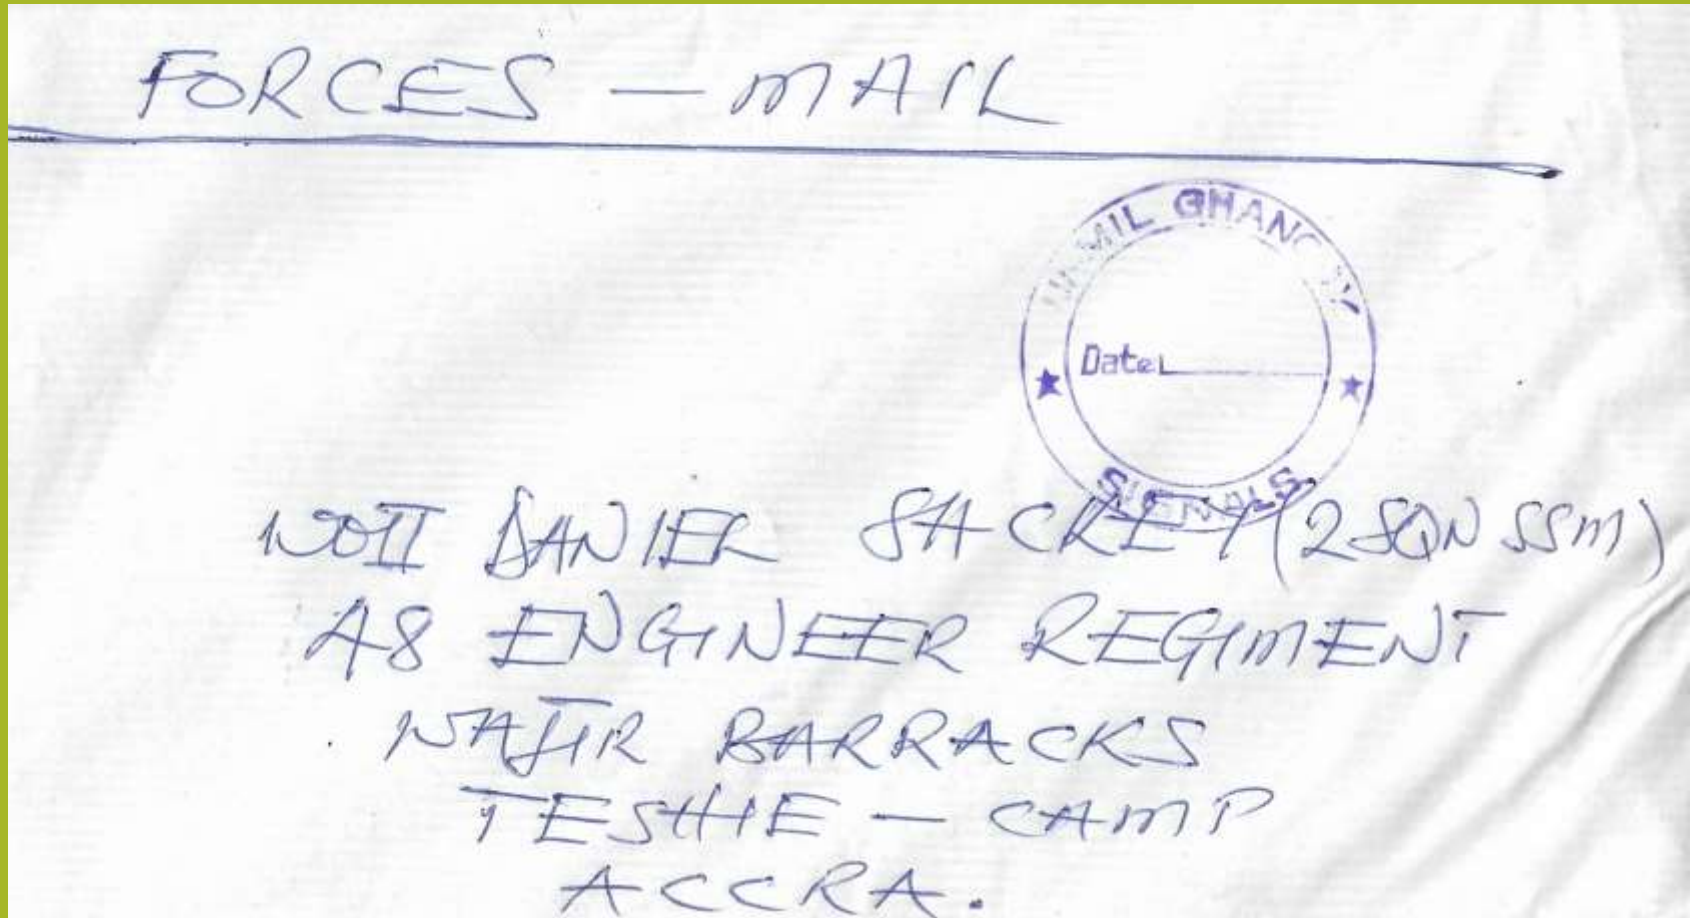 FORCES - MAIL
GHAN
Date
SIGNALS
WOII DANIEL SACKEY (2 SQN SSM)
48 ENGINEER REGIMENT
WAJIR BARRACKS
TESHIE - CAMP
ACCRA.